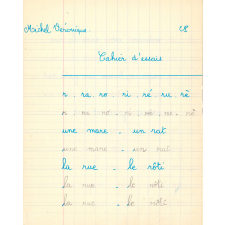 Michel Véronique. C8
Cahier d'essais
r. ra. ro. ri. ré. ru. rè
r. ra. ro. ri. ré. ru. rè
une mare - un rat
une mare - un rat
la rue - le rôti
la rue - le rôti
la rue - le rôti